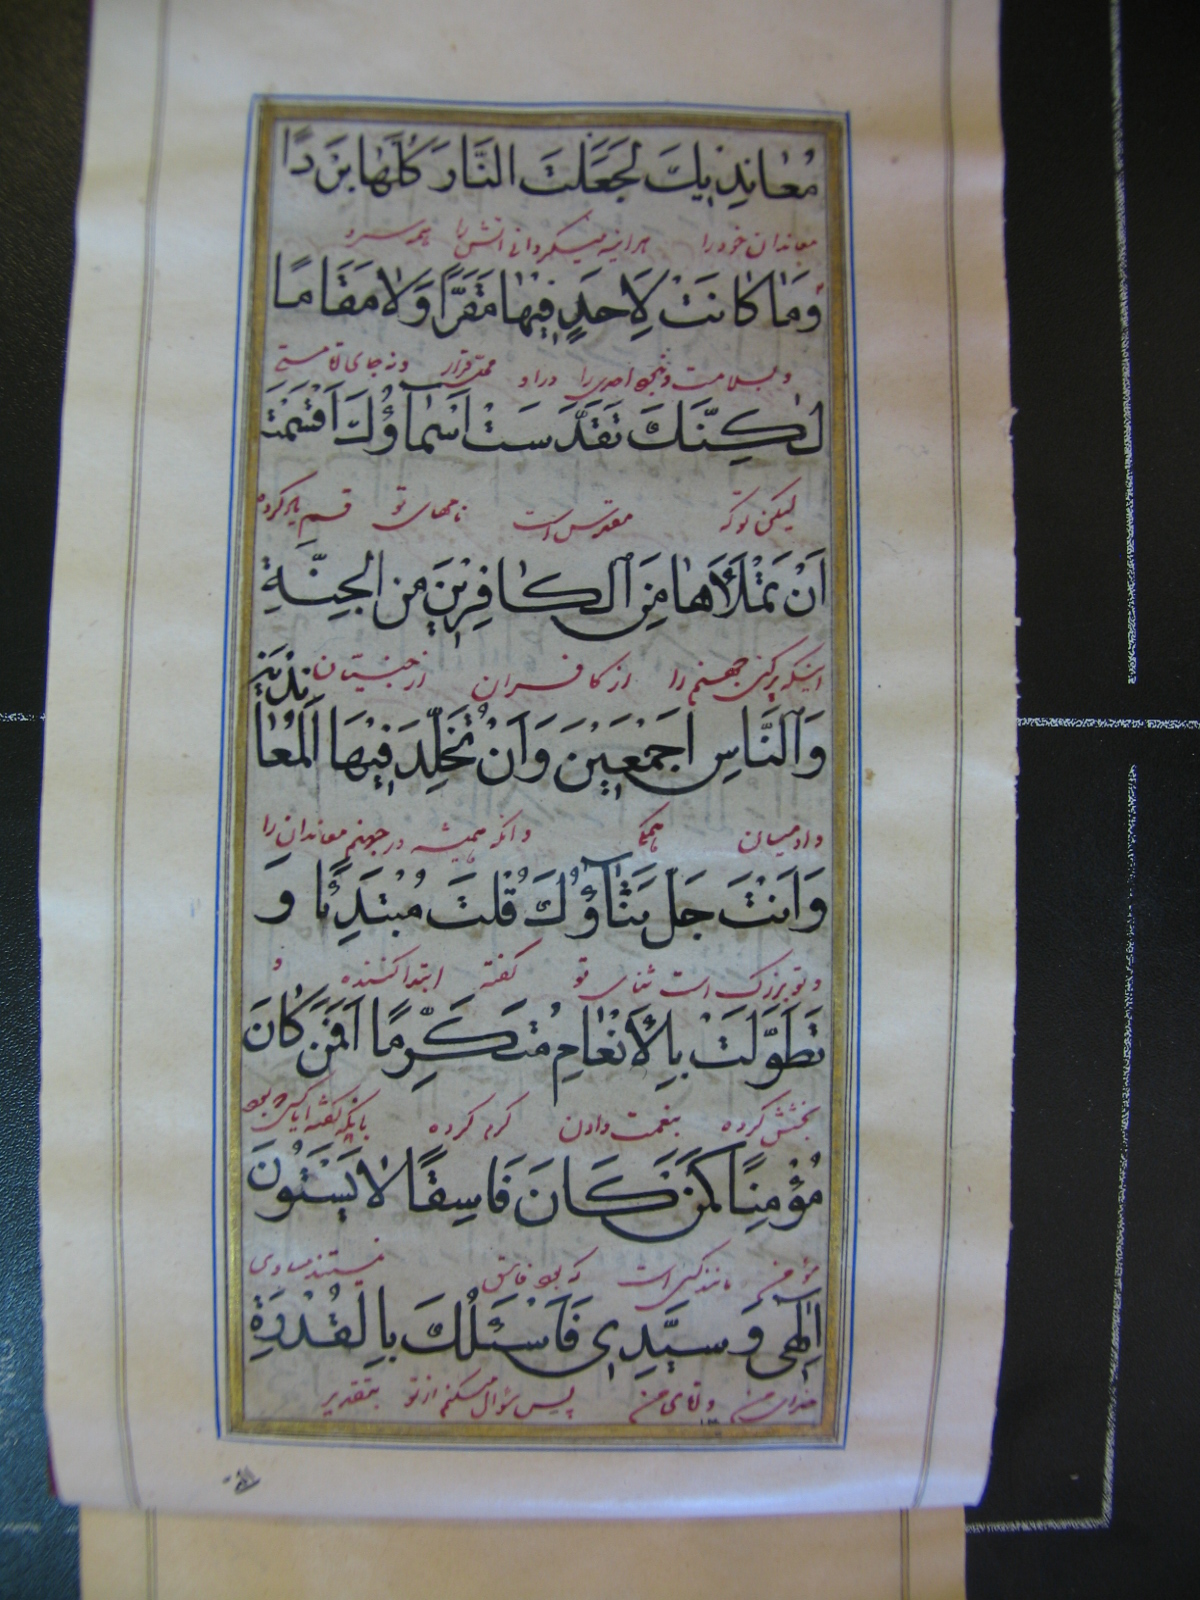 مُعٰانِدِيكَ لَجَعَلتَ النَّارَ كُلَّهٰا بَرْدًا
معاندان خود را هرآینه میگردانی آتش را همه سرد
وَمٰا كٰانَتْ لِاَحَدٍ فِيْهٰا مَقَرًّا وَلٰا مَقٰامًا
و سلامت و احدی را در او محل قرار و نه جای اقامتی
لٰكِنَّكَ تَقَدَّسَتْ اَسْمٰاؤُكَ اَقْسَمْتَ
لیکن تو که مقدس است نامهای تو قسم یاد کرده
اَنْ تَمْلَأَهٰا مِنَ الْكٰافِرِيْنَ مِنَ الْجِنَّةِ
اینکه پر کنی جهنم را از کافران از جنیّان
وَالنَّاسِ اَجْمَعِيْنَ وَاَنْ تُخَلِّدَ فِيْهَا الْمُعٰا نِدْيْنَ
و آدمیان همگی و آنکه همیشه در جهنم معاندان را
وَاَنْتَ جَلَّ ثَنٰاؤُكَ قُلْتَ مُبْتَدِئًا وَ
و تو بزرگ است ثنای تو گفته ابتدا کننده و
تَطَوَّلْتَ بِالْأِنْعٰامِ مُتَكَرِّمًا اَفَمَنْ كَانَ
بخشش کرده بنعمت دادن کرم کرده بانکه گفته ایا کسی که بود
مُؤْمِنًا كَمَنْ كَانَ فَاسِقًا لٰا يَسْتَوُنَ
مؤمن مانند کسی است که بود فاسق نیستند مساوی
اِلٰهِي وَسَيِّدِي فَاَسْئَلُكَ بِالْقُدْرَةِ
خدای من و آقای من پس سؤال میکنم از تو بتقدیر